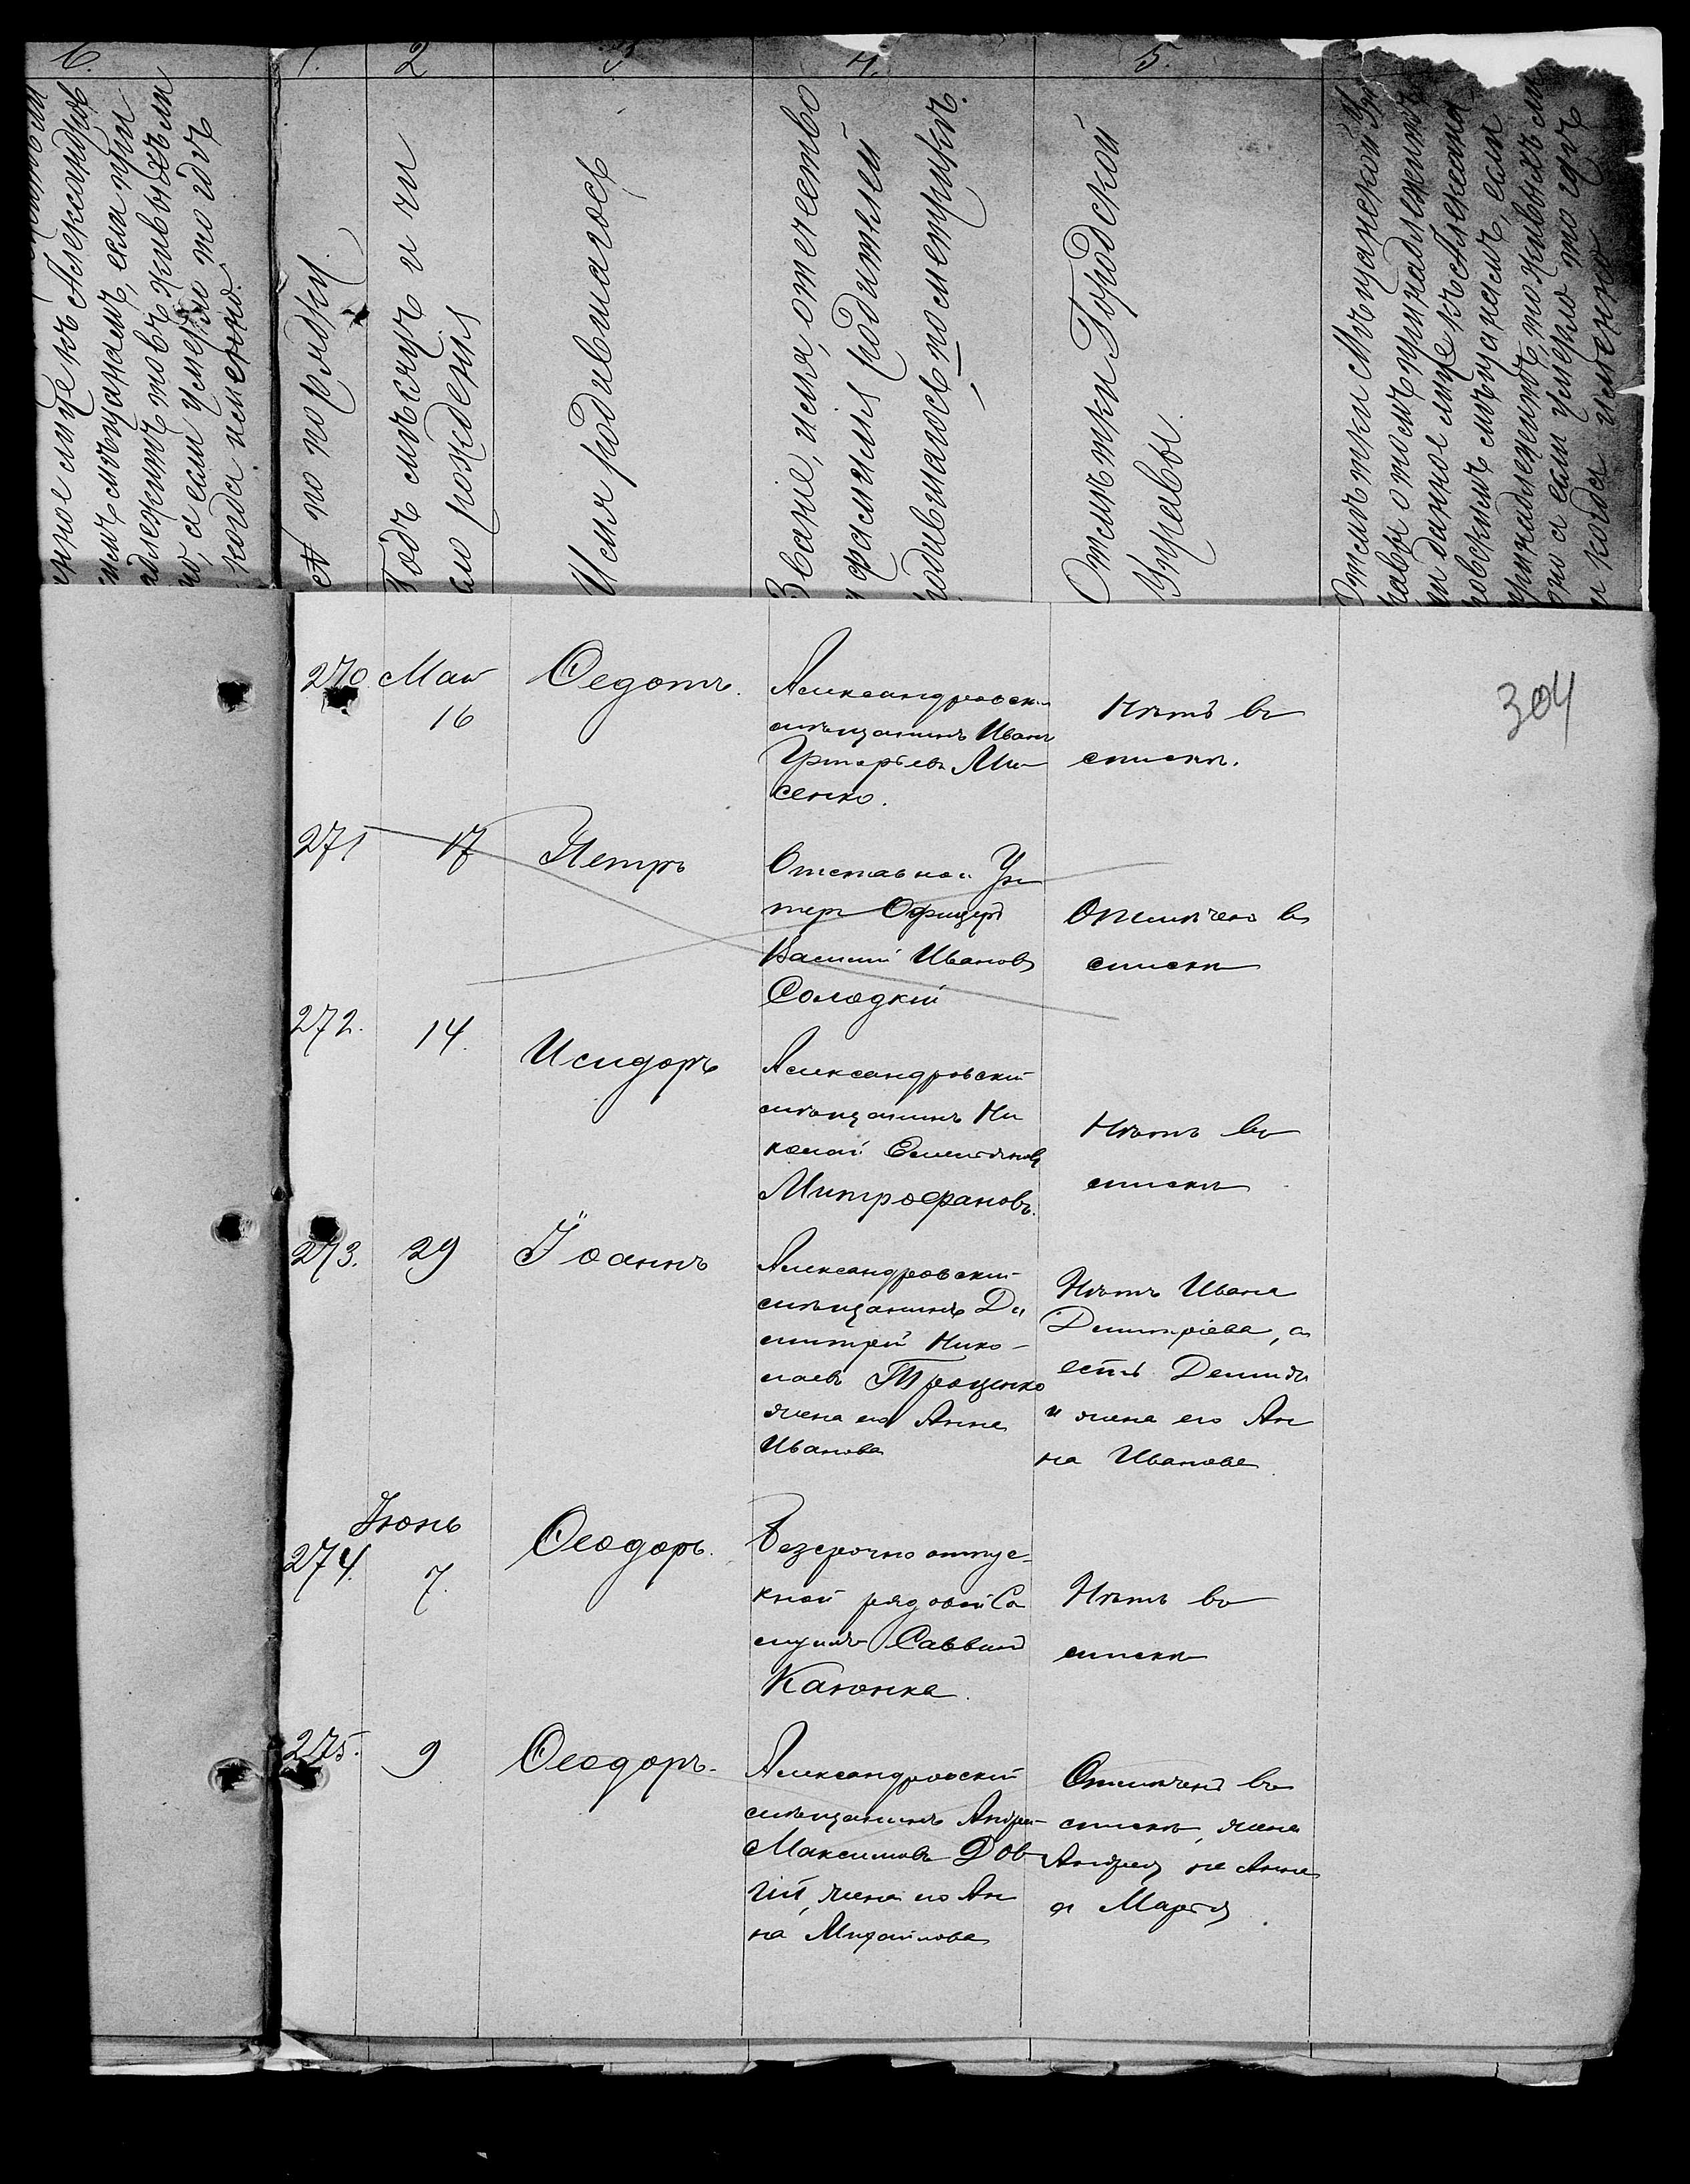 6.
1.
2
3
4.
5.
нное лице къ Александров
мѣщанамъ, если при
адлежитъ то въ живыхъ ли
но, а если умерло то гдѣ
когда именно.
№ по порядку
Годъ мѣсяцъ и чи
сло рожденія
Имя родившагося
Званіе, имя, отчество
и фамилія родителей
родившагося, по метрикѣ.
Отмѣтки Городской
Управы.
Отмѣтки Мѣщанской Уп
равы о томъ принадлежитъ
ли данное лице къ Александ
ровскимъ мѣщанамъ, если
принадлежитъ, то живыхъ ли
оно а если умерло то гдѣ
и когда именно
304
270. Май
16
Федотъ.
Александровскій
мѣщанинъ Иванъ
сенко.
Нѣтъ въ
спискѣ.
271
17
Петръ
Отставной Ун
теръ Офицеръ
Василий Ивановъ
Солодкій
Отмѣчено въ
спискѣ
272.
14.
Исидоръ
Александровскій
мѣщанинъ Ни
колай Емельяновъ
Митрофановъ.
Нѣтъ въ
спискѣ
273.
29
Іоаннъ
Александровскій
мѣщанинъ Ди
митрей Нико-
лаевъ Троценко
жена его Анна
Иванова
Нѣтъ Ивана
Димитріева, а
есть
и жена его Ан
на Иванова
Іюнь
274.
7.
Феодоръ.
Безсрочно отпус-
кной рядовой Са
муилъ Саввинъ
Канюка.
Нѣтъ въ
спискѣ
275.
9
Феодоръ.
Александровскій
мѣщанинъ Андрей
Максимовъ Дов
гій, жена его Ан
на Михайлова
Отмѣченъ въ
спискѣ, жена
Андрея не Анна
а Марія